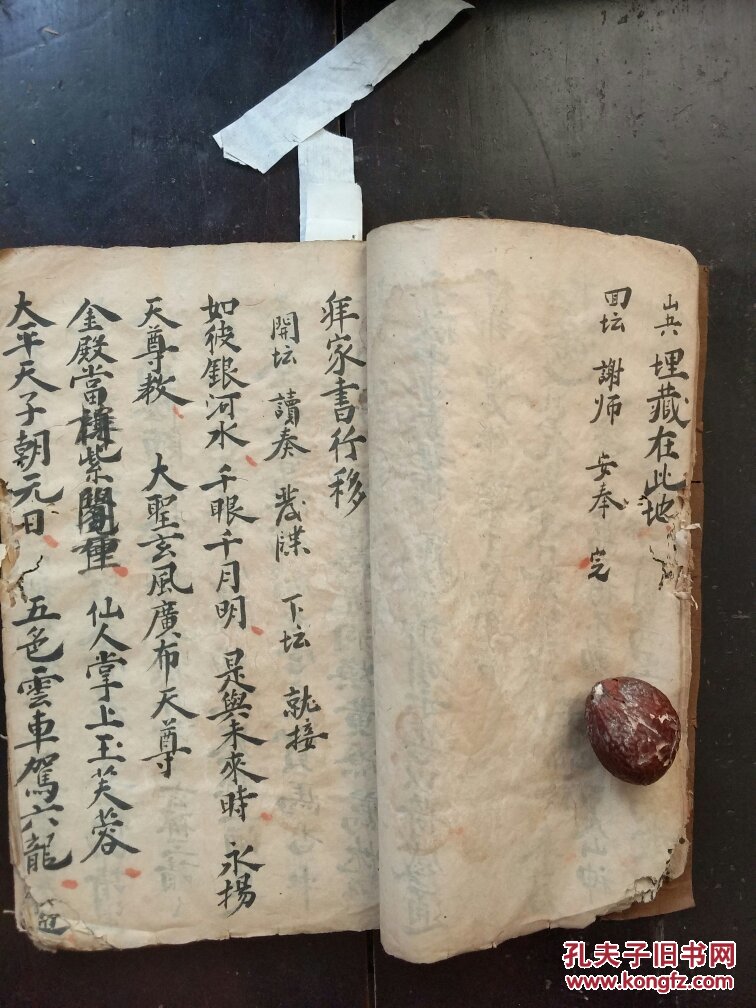 山兵埋藏在此地
回坛 謝师 安奉 完
家書行移
開坛 讀奏 發牒 下坛 就接
如彼銀河水 千眼千月明 是與未來時 永揚
天尊教 大聖玄風廣布天尊
金殿當 紫閣 仙人掌上玉芙蓉
大平天子朝元日 五色雲車駕六龍
孔夫子旧书网
www.kongfz.com